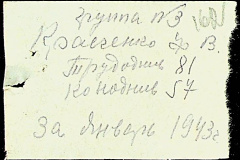 группа №3
Кравченко Ф В.
Трудодние 81
Конодние 57
За Январь 1943г